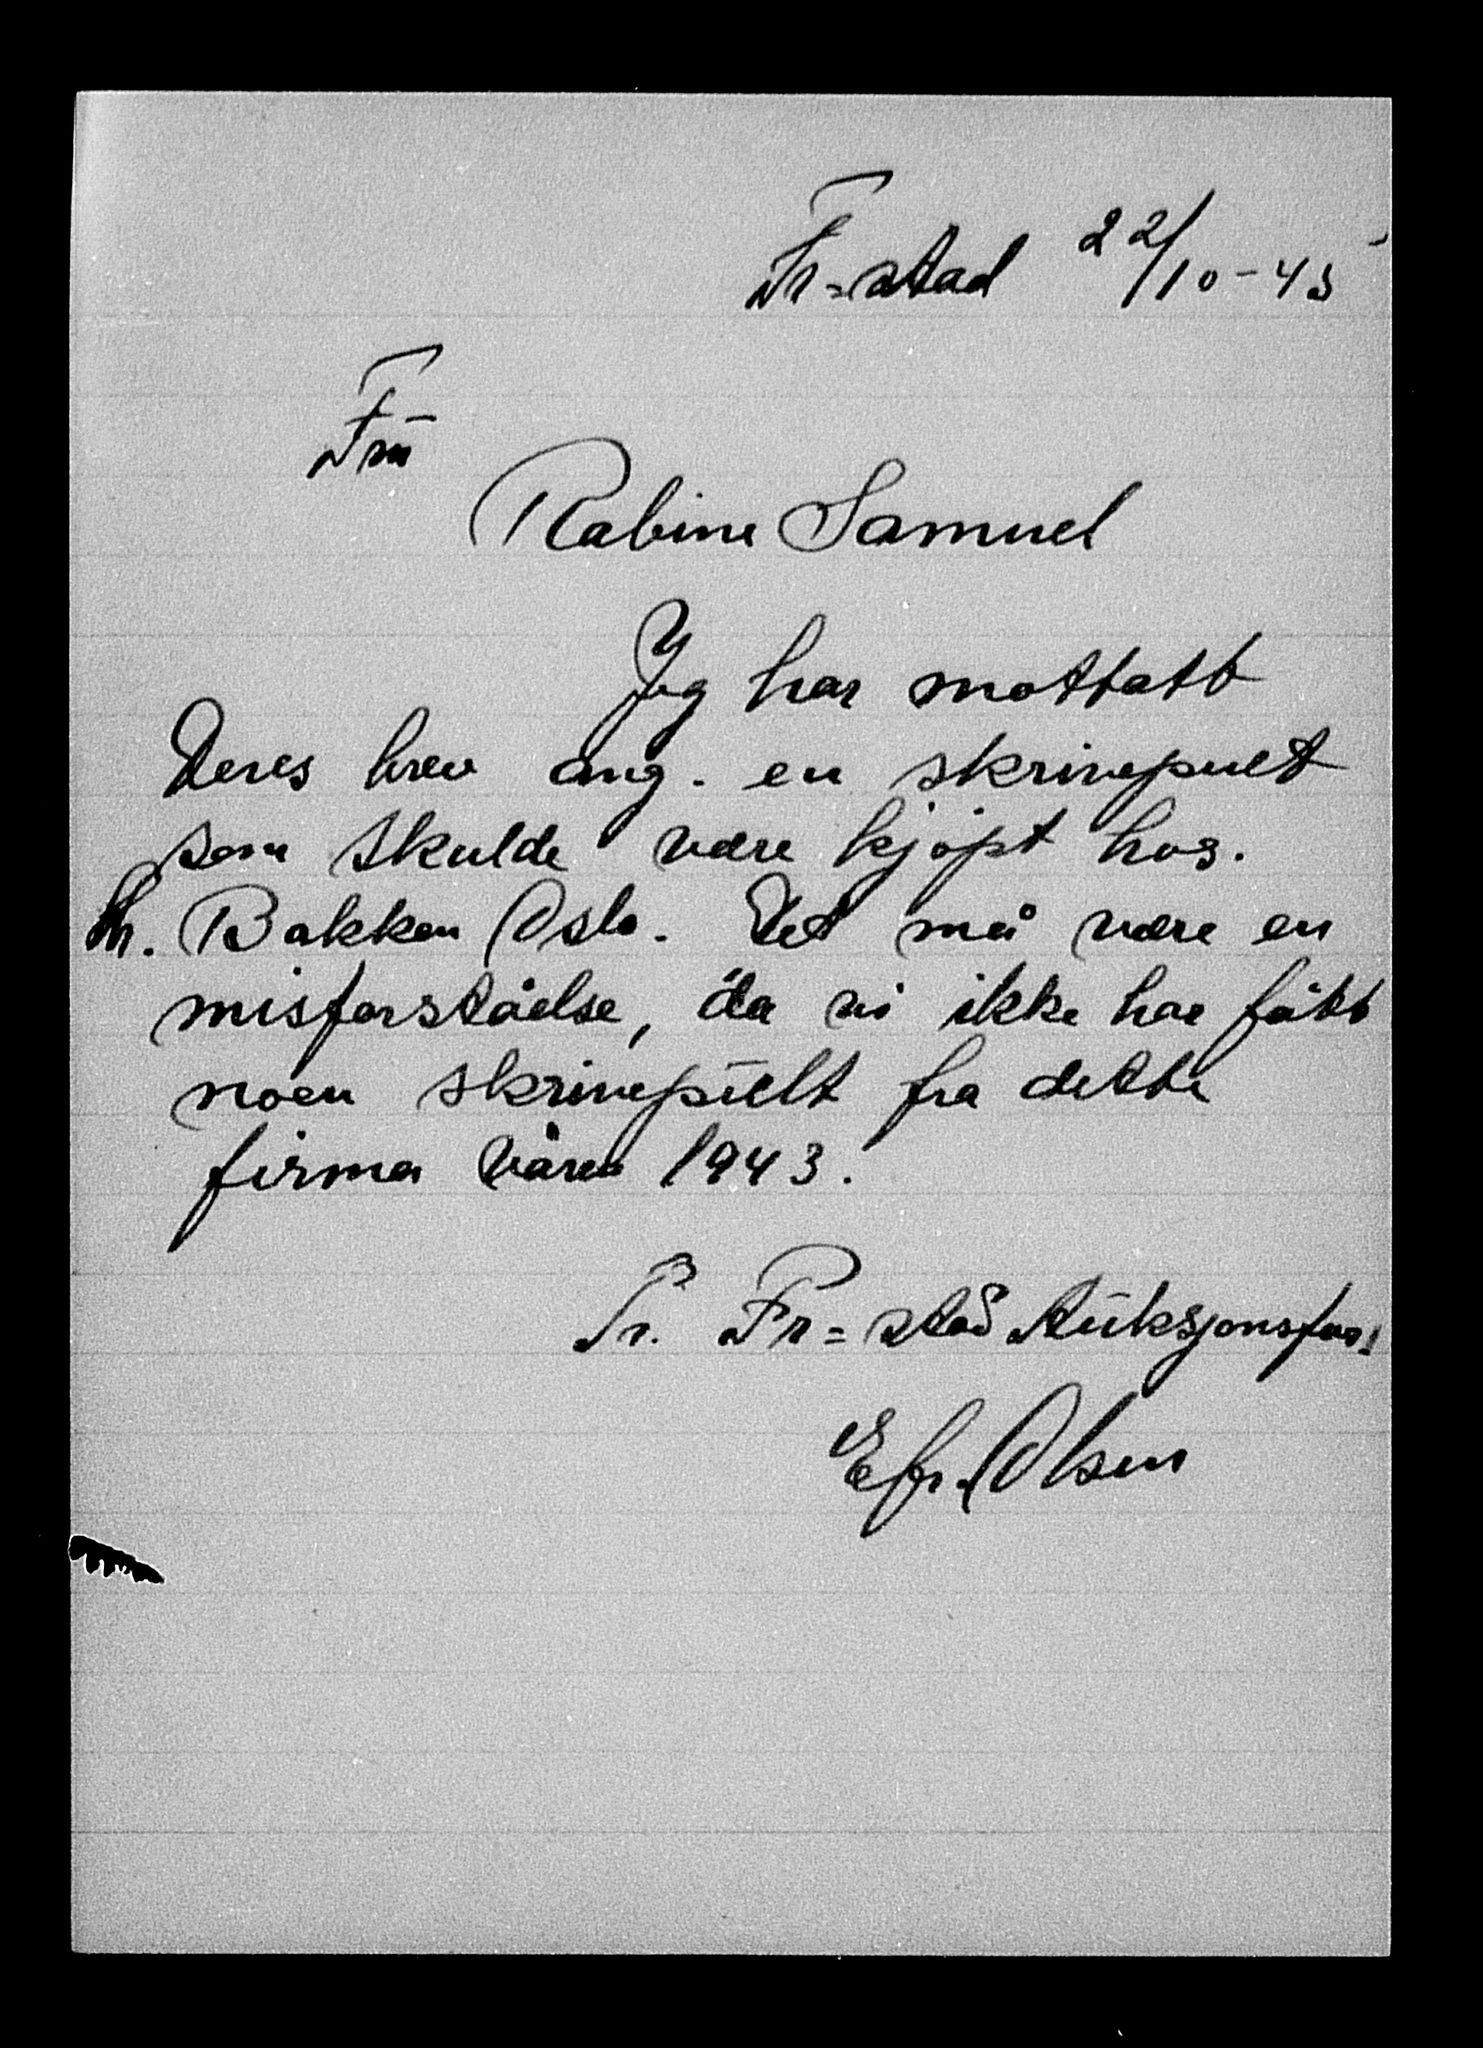 Fr-stad 22/10-45
Frū
Rabine Samuel
Jeg har mottatt
Deres brev ang. en skrivepult
som skulde være kjøpt hos.
hr. Bakken Oslo. Det må være en
misforståelse, da vi ikke har fått
noen skrivepūlt fra dette
firma våren 1943.
Pr. Fr=stad Aūksjonsforr.
Efr. Olsen